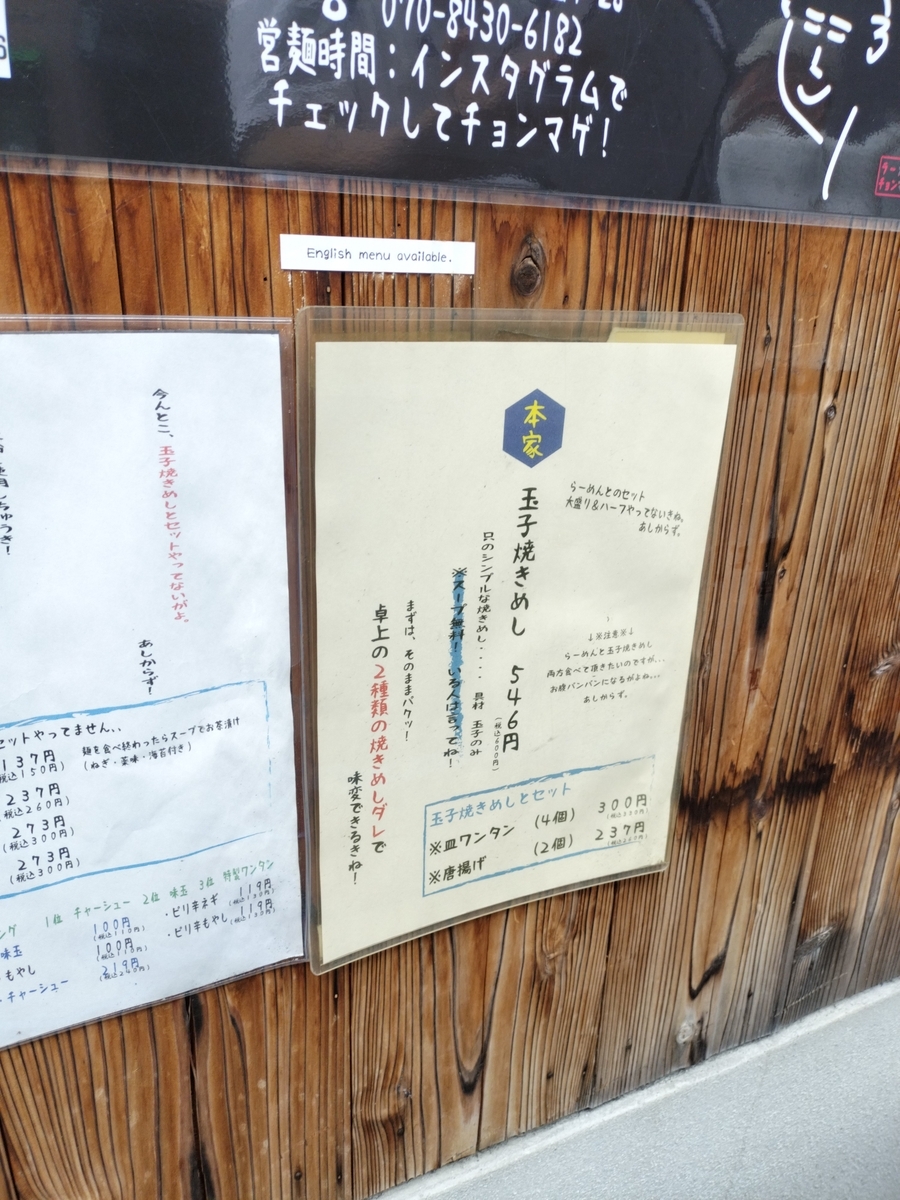 070-8430-6182
営麺時間：インスタグラムで
チェックしてチョンマゲ！
English menu available.
本家
らーめんとのセット
大盛り＆ハーフやってないきね。
あしからず。
玉子焼きめし 546円
(税込600円)
只のシンプルな焼きめし・・・・ 具材 玉子のみ
※スープ無料！いる人は言ってね！
まずは、そのままパクッ！
卓上の2種類の焼きめしダレで
味変できるきね！
↓※注意※↓
らーめんと玉子焼きめし
両方食べて頂きたいのですが...
お腹パンパンになるがよね...
あしからず。
玉子焼きめしとセット
※皿ワンタン (4個) 300円
(税込330円)
※唐揚げ (2個) 237円
(税込260円)
今んとこ、玉子焼きめしとセットやってないがよ。
あしからず！
セットやってません、、
137円
(税込150円)
麺を食べ終わったらスープでお茶漬け
(ねぎ・薬味・海苔付き)
237円
(税込260円)
273円
(税込300円)
273円
(税込300円)
1位 チャーシュー 2位 味玉 3位 特製ワンタン
100円
(税込110円)
・ピリ辛ネギ 119円
(税込130円)
味玉 100円
(税込110円)
・ピリ辛もやし 119円
(税込130円)
もやし 219円
(税込240円)
・チャーシュー